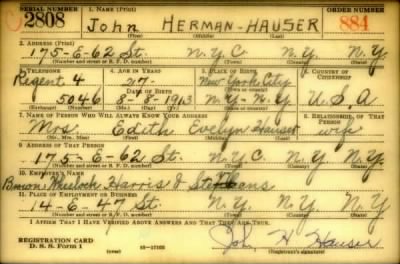 SERIAL NUMBER 1. NAME (Print) ORDER NUMBER
2808 John HERMAN-HAUSER 884
(First) (Middle) (Last)
2. ADDRESS (Print)
175-E-62 St. N.Y.C N.Y. N.Y.
(Number and street or R. F. D. number) (Town) (County) (State)
3. TELEPHONE 4. AGE IN YEARS 5. PLACE OF BIRTH 6. COUNTRY OF CITIZENSHIP
Regent 4 27 New York City
DATE OF BIRTH (Town or county)
5046 8-9-1913 N.Y.-N.Y U.S.A
(Exchange) (Number) (Mo.) (Day) (Yr.) (State or country)
7. NAME OF PERSON WHO WILL ALWAYS KNOW YOUR ADDRESS 8. RELATIONSHIP OF THAT PERSON
Mrs. Edith Evelyn Hauser wife
(Mr., Mrs., Miss) (First) (Middle) (Last)
9. ADDRESS OF THAT PERSON
175-E-62 St. N.Y.C. N.Y. N.Y.
(Number and street or R. F. D. number) (Town) (County) (State)
10. EMPLOYER'S NAME
Brown Wheelock Harris & Stevens
11. PLACE OF EMPLOYMENT OR BUSINESS
14-E-47 St. N.Y. N.Y. N.Y.
(Number and street or R. F. D. number) (Town) (County) (State)
I AFFIRM THAT I HAVE VERIFIED ABOVE ANSWERS AND THAT THEY ARE TRUE.
REGISTRATION CARD
D. S. S. Form 1 (over) 16-17105 John H Hauser
(Registrant's signature)